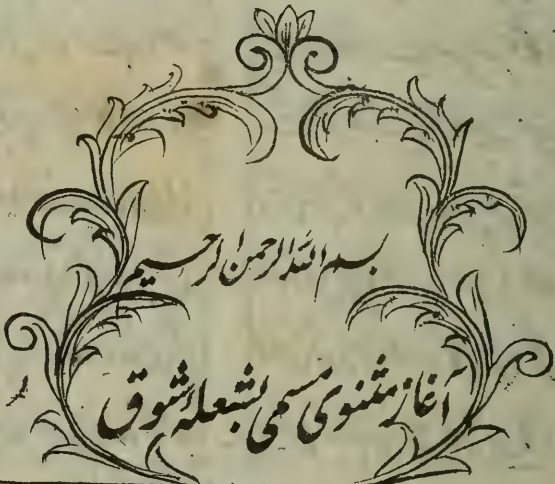 بسم اللہ الرحمن الرحیم
آغاز مثنوی مسمی بشعلہ شوق